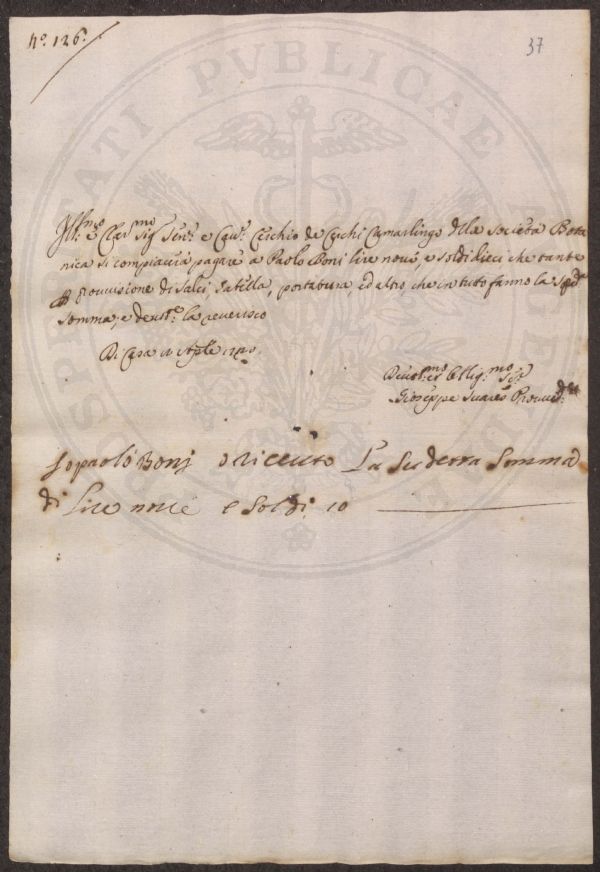 nº. 126.
37
Ill:mo e Clar:mo Sig:r Sen:r e Cau:r Cerchio de Cerchi Camarlingo della Società Bota
nica si compiacerà pagare a Paolo Boni lire noue, e soldi dieci che tante
Prouuisione di Salci, portatura, ed altro che in tutto fanno la Sud:a
somma, e deuot:e la reuerisco
Di Casa
Deuot:mo et Obblig:mo Ser:
Giuseppe Suares Prouued:re
Io paolo Boni o riceuto La Sudetta Somma
di Lire noue e Soldi 10
PROSPERITATI PUBLICAE